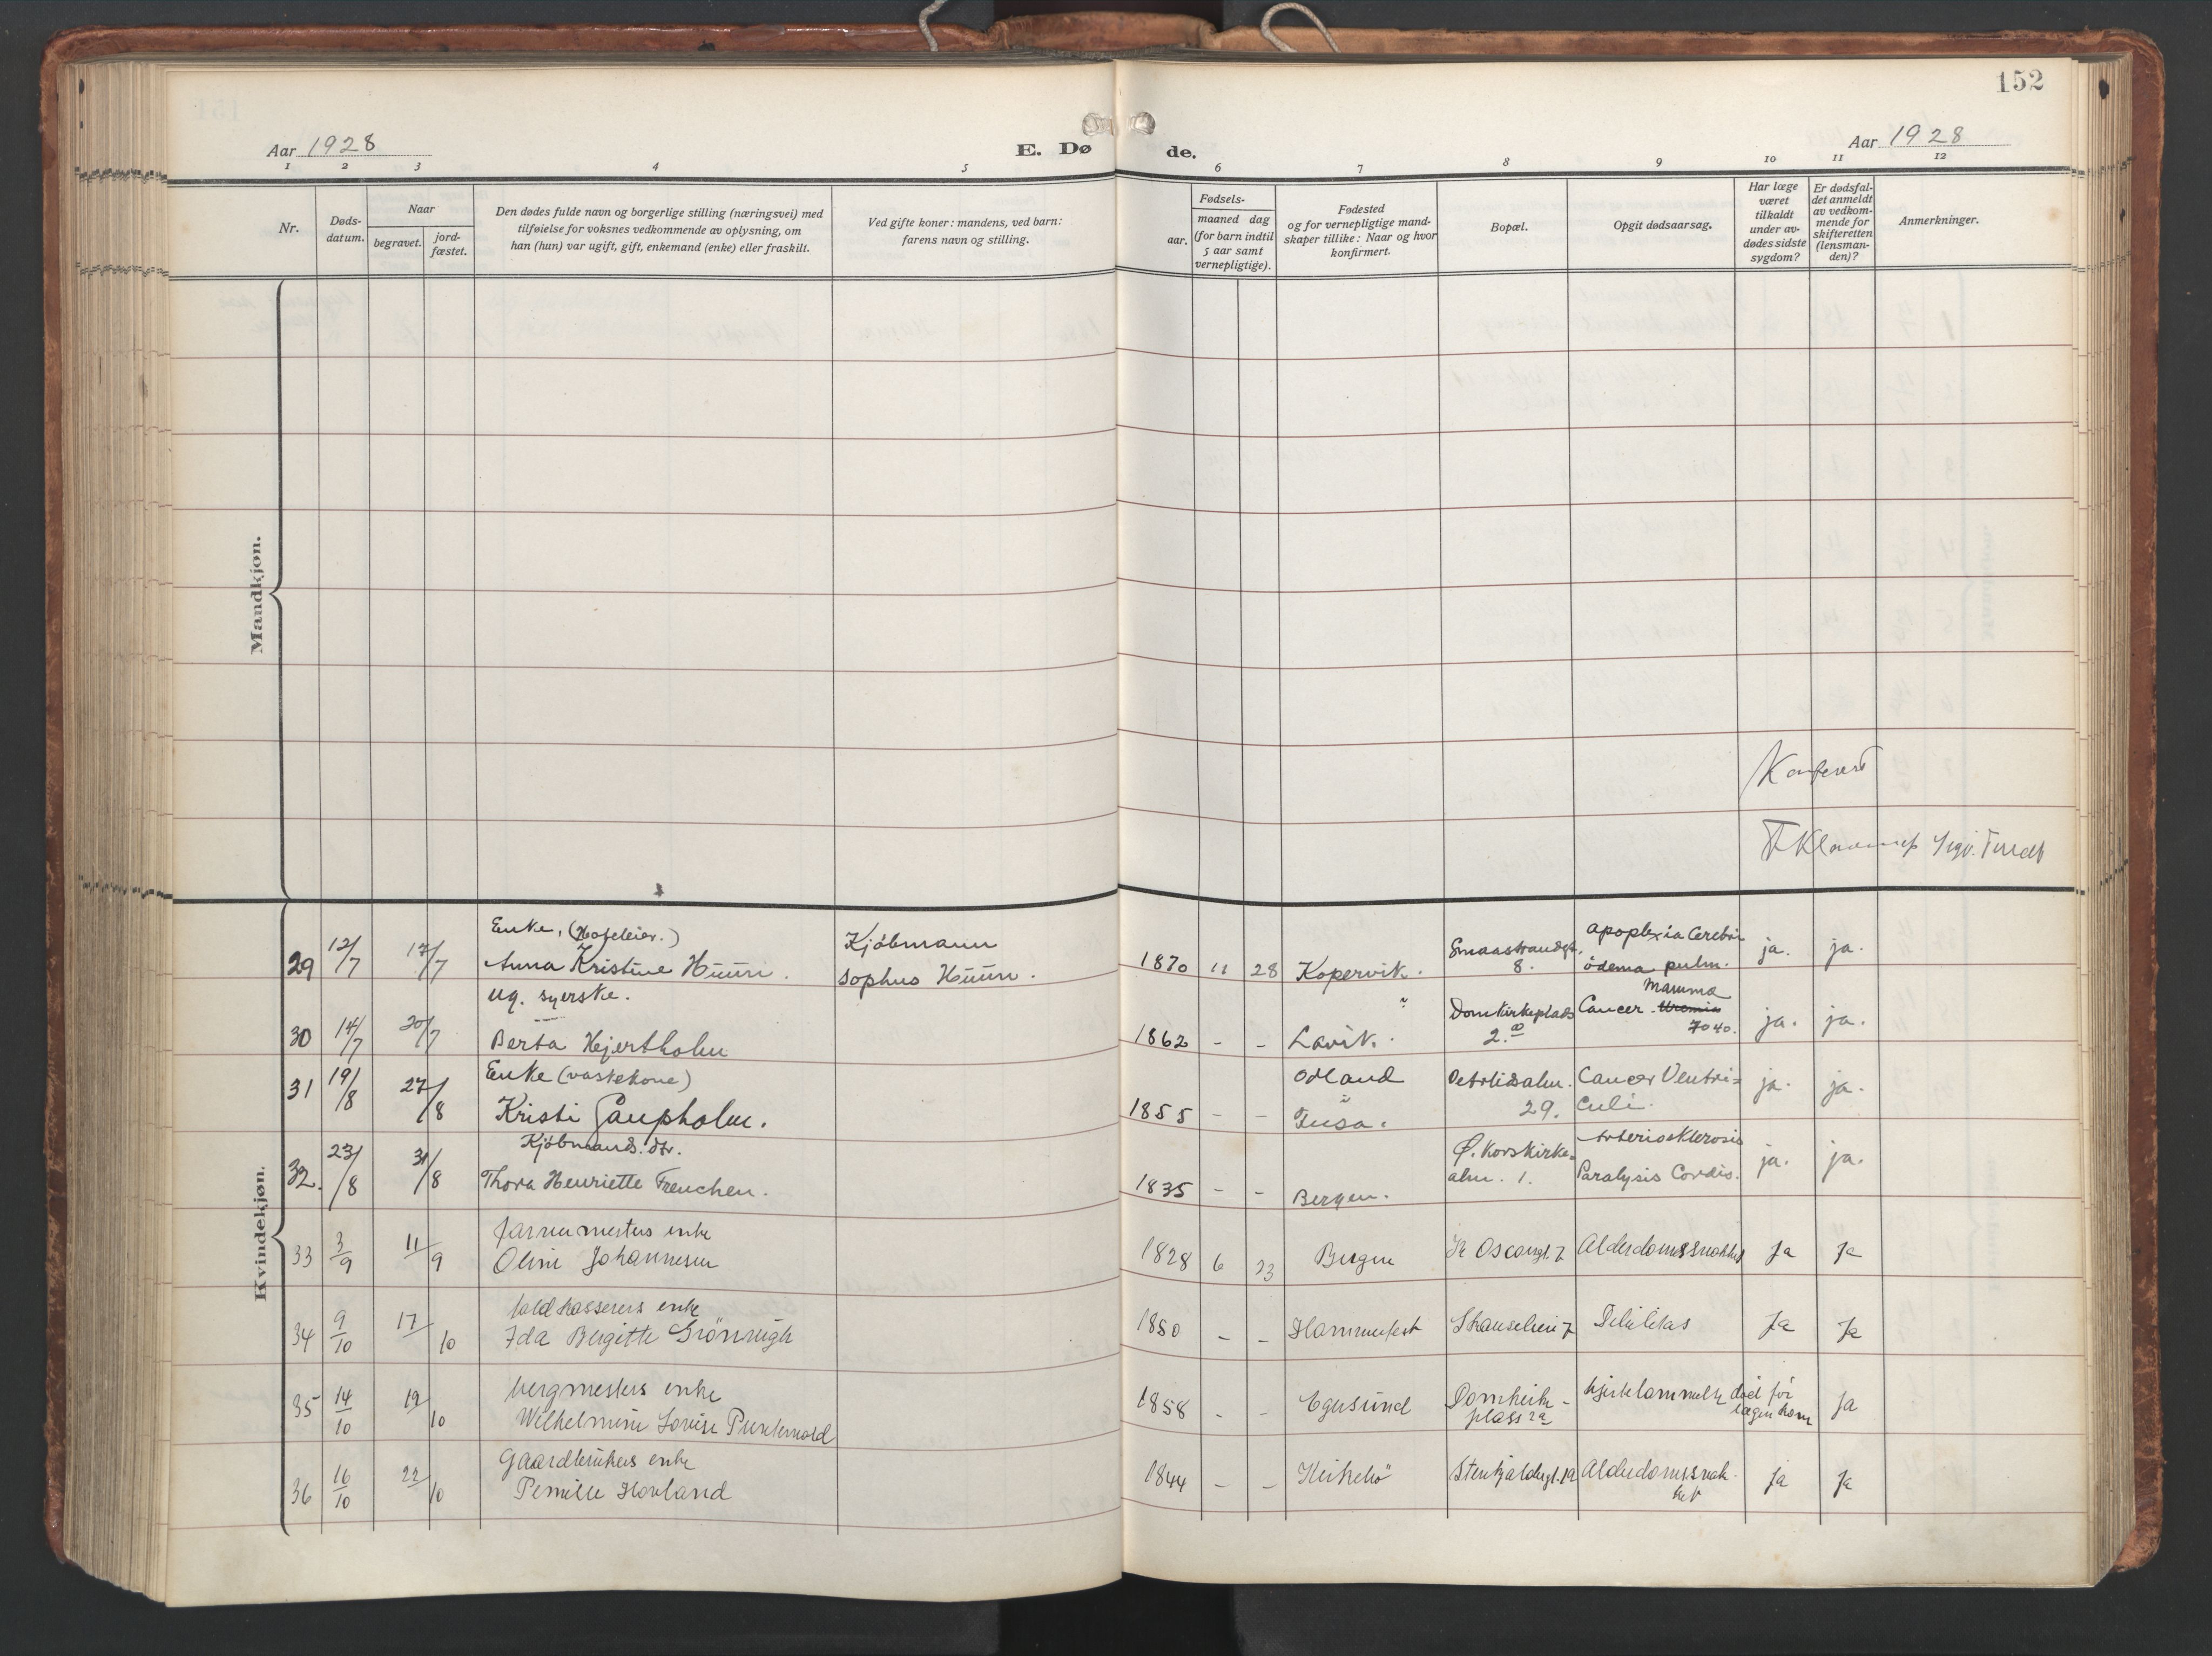 152
Aar 1928
E. Dø
de.
Aar 1928
1 2 3 4 5 6 7 8 9 10 11 12
Nr.
Døds-
datum.
Naar
begravet.
jord-
fæstet.
Den dødes fulde navn og borgerlige stilling (næringsvei) med
tilføielse for voksnes vedkommende av oplysning, om
han (hun) var ugift, gift, enkemand (enke) eller fraskilt.
Ved gifte koner: mandens, ved barn:
farens navn og stilling.
Fødsels-
aar.
maaned dag
(for barn indtil
5 aar samt
vernepligtige).
Fødested
og for vernepligtige mand-
skaper tillike: Naar og hvor
konfirmert.
Bopæl.
Opgit dødsaarsag.
Har læge
været
tilkaldt
under av-
dødes sidste
sygdom?
Er dødsfal-
det anmeldt
av vedkom-
mende for
skifteretten
(lensman-
den)?
Anmerkninger.
Mandkjøn.
Konferert
Kvindekjøn.
29 12/7 17/7
Enke,
Anna Kristine Hüün.
Kjöbmann
Sophus Hüün.
1870 11 28 Kopervik.
Smaastrandgt.
8.
apoplexia Cerebri
ödema pulm.
ja. ja.
30 14/7 20/7
ug. syerske.
Berta Hjertholm
1862 - - Lavik.
Domkirkeplads
2.a
Cancer Mamma
7040.
ja. ja.
31 19/8 27/8
Enke (vaskekone)
Kristi Gaupholm.
1855 - -
Odland
Fusa.
29.
Cancer Ventri-
culi.
ja. ja.
32. 23/8 31/8
Kjöbmands. dtr.
Thora Henriette Frenchen.
1835 - - Bergen.
Ø. Korskirke-
alm. 1.
Arteriosklerosis
Paralysis Cordis.
ja. ja.
33 3/9 11/9
enke
Oline Johannesen
1828 6 23 Bergen
Oscarsgt. 7
Alderdomssvakhet
Ja Ja
34 9/10 17/10
toldkasserers enke
Ida Bergitte Grönvigh
1850 - - Hammerfest
7
Debilitas
Ja Ja
35 14/10 19/10
bergmesters enke
Wilhelmine Lovise
1858 - - Egersund
Domkirke-
plass 2a
hjertelammelse
død før
lægen kom
Ja
36 16/10 22/10
Gaardbrukers enke
Pernille Hovland
1844 - - Kirkebö
Alderdomssvak-
het
Ja Ja